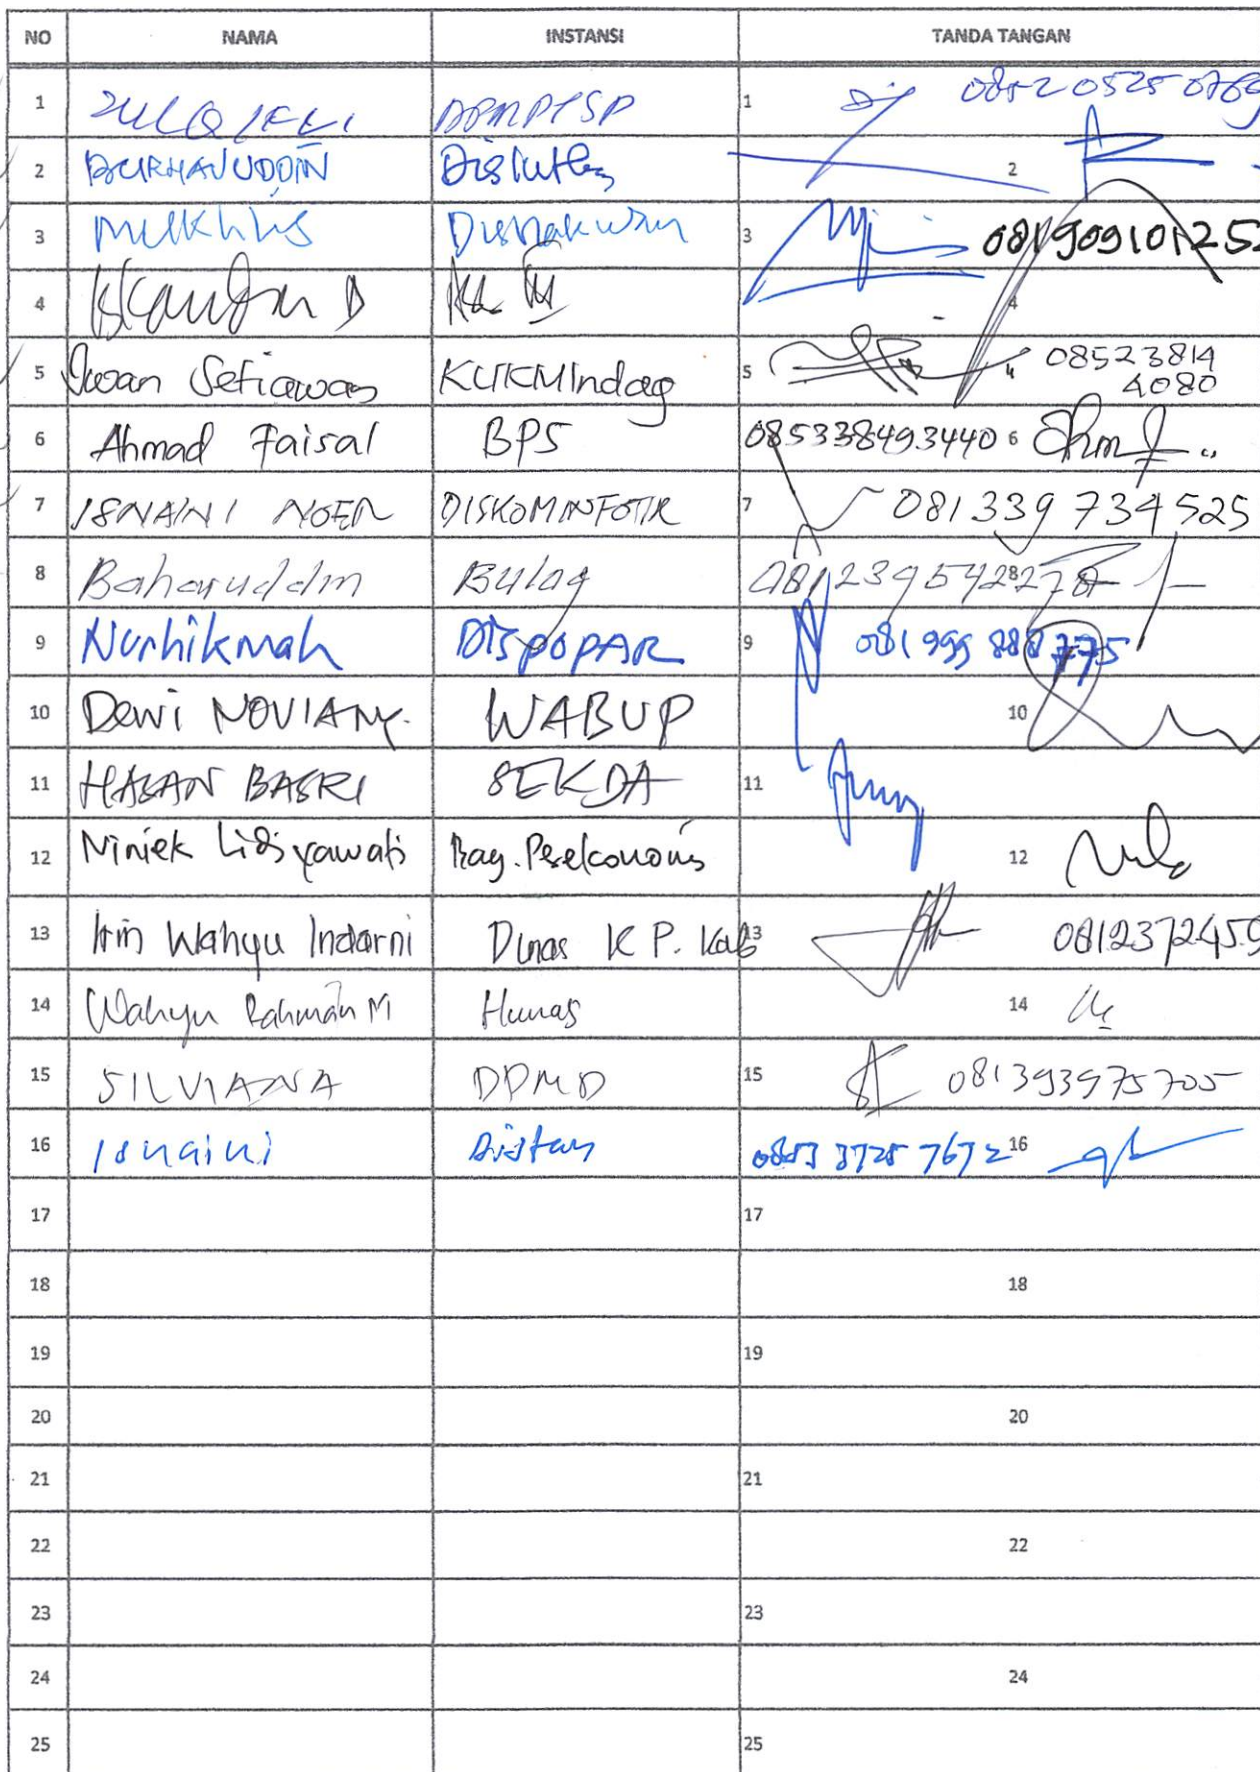 NO NAMA INSTANSI TANDA TANGAN
1 ZULQIFLI DPMPTSP 1
2 BURHANUDDIN Dislutkan 2
3 Mukhlis Disnakwan 3
4 4
5 Iwan Setiawan KUKMIndag 5 08523814
4080
6 Ahmad Faisal BPS 085338493440 6
7 ISNAINI NOER DISKOMINFOTIK 7 081 339 734 525
8 Baharuddin Bulog 8
9 Nurhikmah DISPOPAR 9 081 999 888 775
10 Dewi NOVIANY. WABUP 10
11 HASAN BASRI SEKDA 11
12 Niniek Lidyawati Bag. Perekonomis 12
13 Irin Wahyu Indarni Dinas K P. Kab 13 0812372459
14 Wahyu Rahman M Humas 14
15 SILVIANA DPMD 15 081393975705
16 Isnaini Distan 16
17 17
18 18
19 19
20 20
21 21
22 22
23 23
24 24
25 25